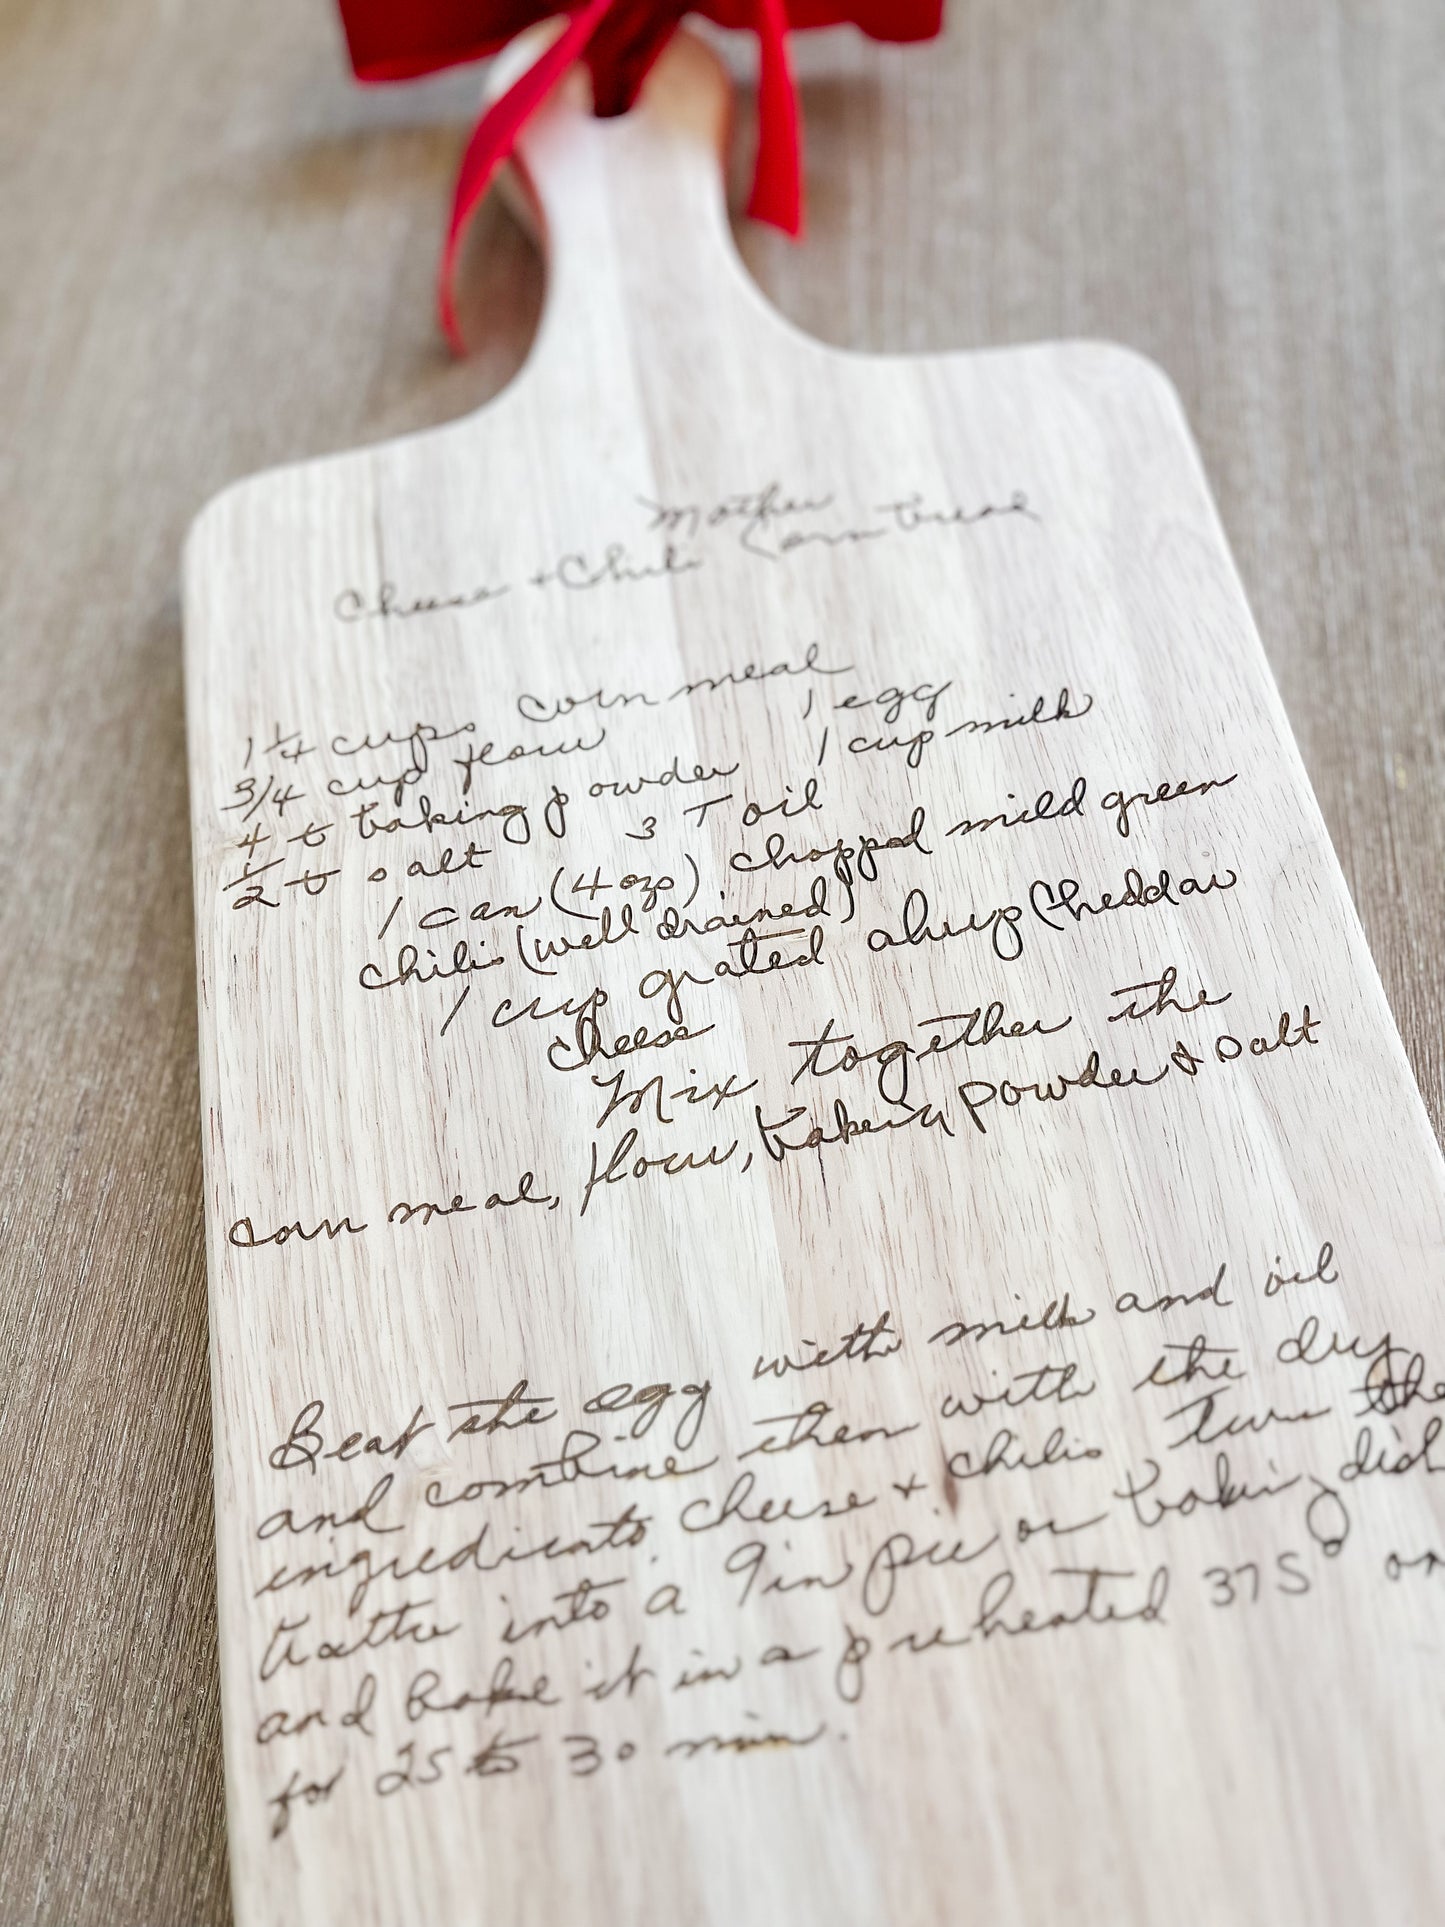 Mother
Cheese + Chili Corn bread
1 1/4 cups corn meal
3/4 cup flour 1 egg
4 t baking powder 1 cup milk
1/2 t salt 3 T oil
1 can (4 ozs) chopped mild green
chilis (well drained)
1 cup grated sharp Cheddar
cheese
Mix together the
corn meal, flour, baking powder & salt
Beat the egg with milk and oil
and combine them with the dry
ingredients, cheese + chilis Turn the
batter into a 9 in pie or baking dish
and bake it in a preheated 375°
for 25 to 30 min.